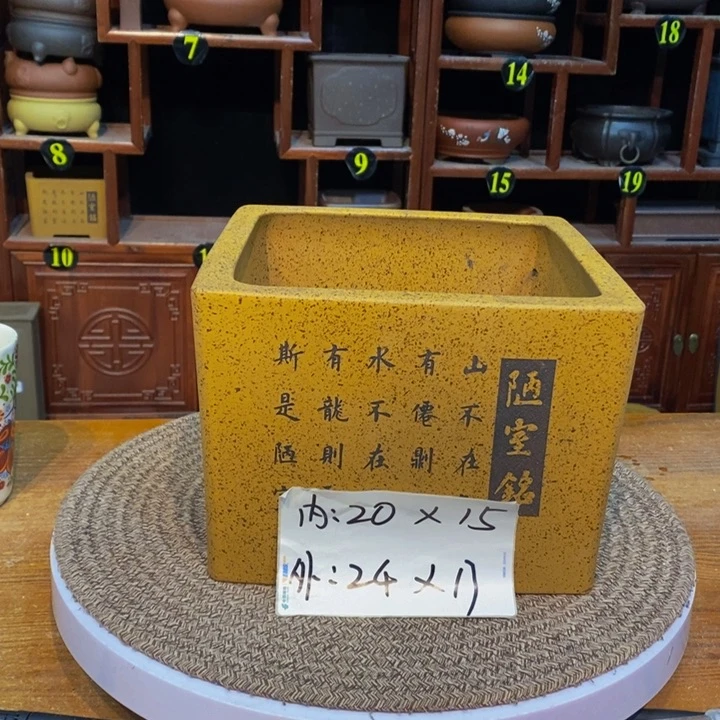 陋室銘
山不在
有僊剿
水不在
有龍則
斯是陋
内:20 × 15
外:24 × 17
7
8
9
10
14
15
18
19